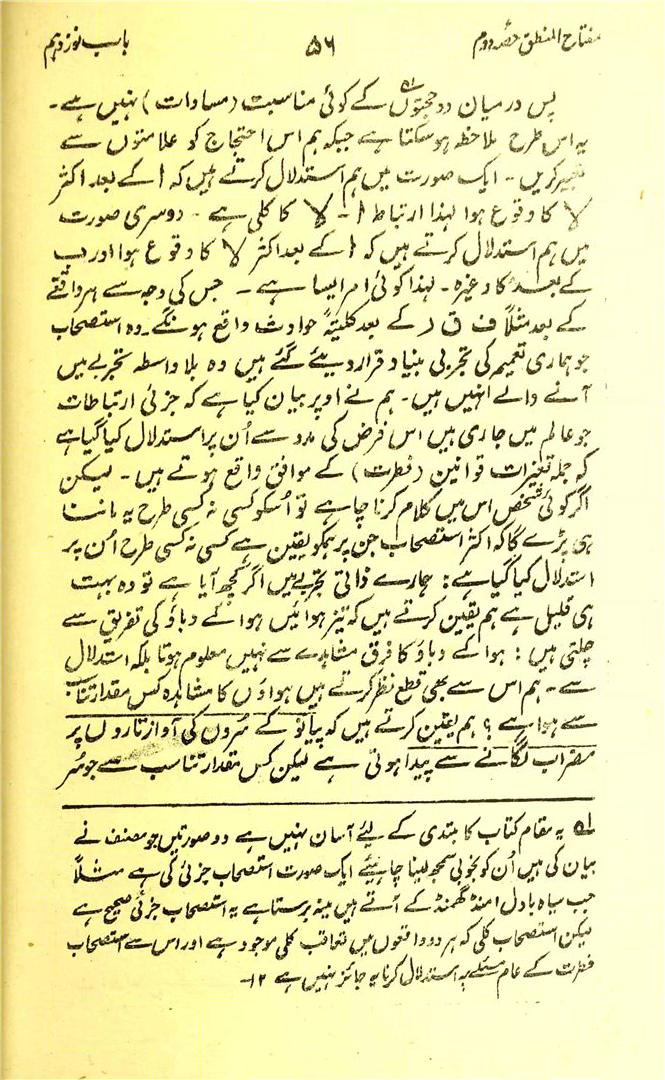 مفتاح المنطق حصہ دوم ۵۶ باب نوزدہم
پس درمیان دو حجتوں ؎۱ کے کوئی مناسبت (مساوات) نہیں ہے۔
یہ اس طرح ملاحظہ ہوسکتا ہے جبکہ ہم اس احتجاج کو علامتوں سے
تعبیر کریں۔ ایک صورت میں ہم استدلال کرتے ہیں کہ ا کے بعد اکثر
لا کا وقوع ہوا لہذا ارتباط ا۔ لا کا کلی ہے۔ دوسری صورت
میں ہم استدلال کرتے ہیں کہ ا کے بعد اکثر لا کا وقوع ہوا اور ب
کے بعد کا وغیرہ۔ لہذا کوئی امر ایسا ہے۔ جس کی وجہ سے ہر واقعے
کے بعد مثلاً ف ق ر کے بعد کلیتہً حوادث واقع ہونگے۔ وہ استصحاب
جو ہماری تعمیم کی تجربی بنیاد قرار دیئے گئے ہیں وہ بلا واسطہ تجربے میں
آنے والے انہیں ہیں۔ ہم نے اوپر بیان کیا ہے کہ جزئی ارتباطات
جو عالم میں جاری ہیں اس فرض کی مدد سے اُن پر استدلال کیا گیا ہے
کہ جملہ تغیرات قوانین (فطرت) کے موافق واقع ہوتے ہیں۔ لیکن
اگر کوئی شخص اس میں کلام کرنا چاہے تو اُسکو کسی نہ کسی طرح یہ ماننا
ہی پڑے گا کہ اکثر استصحاب جن پر ہمکو یقین ہے کسی نہ کسی طرح اُن پر
استدلال کیا گیا ہے: ہمارے ذاتی تجربے میں اگر کچھ آیا ہے تو وہ بہت
ہی قلیل ہے ہم یقین کرتے ہیں کہ تیز ہوائیں ہوا کے دباؤ کی تفریق سے
چلتی ہیں: ہوا کے دباؤ کا فرق مشاہدے سے نہیں معلوم ہوتا بلکہ استدلال
سے۔ ہم اس سے بھی قطع نظر کرتے ہیں ہواؤں کا مشاہدہ کس مقدار تناسب
سے ہوا ہے؟ ہم یقین کرتے ہیں کہ پیانو کے سُروں کی آواز تاروں پر
مضراب لگانے سے پیدا ہوتی ہے لیکن کس مقدار تناسب سے جو سُر
؎۱ یہ مقام کتاب کا مبتدی کے لئے آسان نہیں ہے دو صورتیں جو مصنف نے
بیان کی ہیں اُن کو بخوبی سمجھ لینا چاہیئے ایک صورت استصحاب جزئی کی ہے مثلاً
جب سیاہ بادل امنڈ گھمنڈ کے آتے ہیں مینہ برستا ہے یہ استصحاب جزئی صحیح ہے
لیکن استصحاب کلی کہ ہر دو واقعوں میں تعاقب کلی موجود ہے اور اس سے استصحاب
فطرت کے عام مسئلے پر استدلال کرنا یہ جائز نہیں ہے ۱۲۔